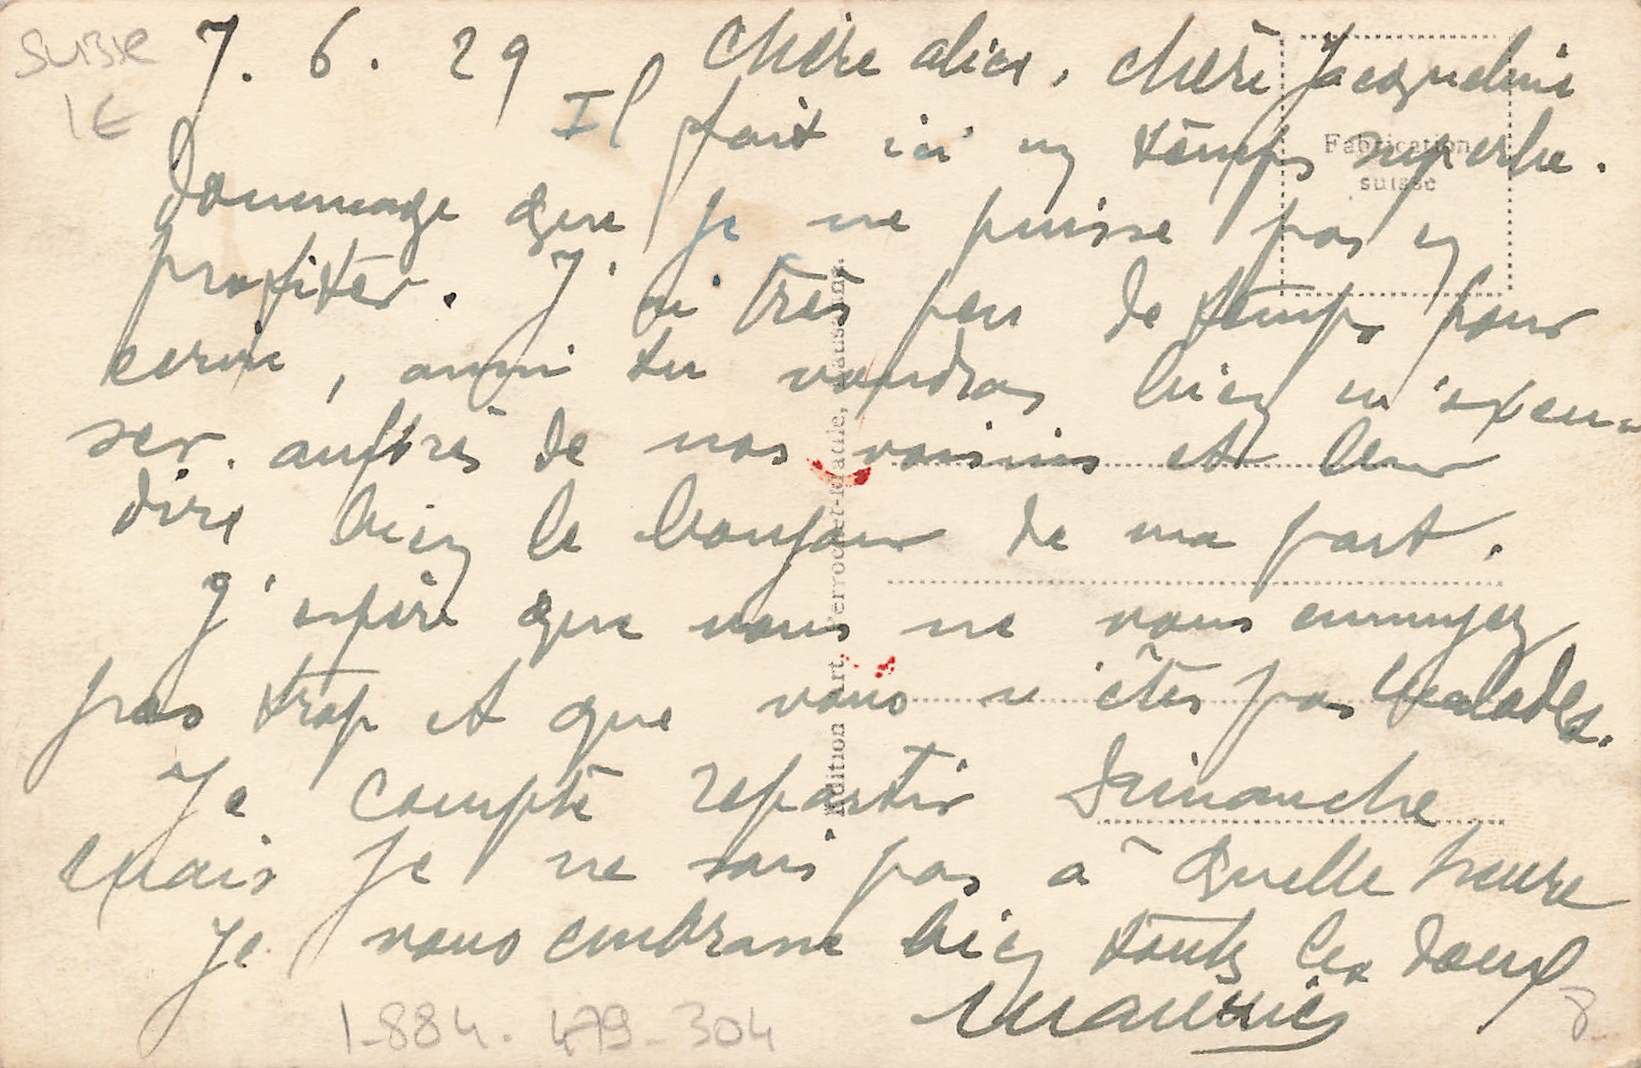 Suisse
1€
7. 6. 29 Chère Alice, chère Jacqueline
Il fait ici un temps superbe.
Dommage que je ne puisse pas en
profiter. J'ai très peu de temps pour
ecrire, aussi tu voudras bien m'excu-
ser auprès de nos voisins et leur
dire bien le bonjour de ma part.
J'espère que vous ne vous ennuyez
pas trop et que vous n'êtes pas malades.
Je compte repartir Dimanche
mais je ne sais pas à quelle heure
Je vous embrasse bien toutes les deux
Fabrication
suisse
Edition Art. Perrochet-Matile, Lausanne.
1-884. 479-304
8